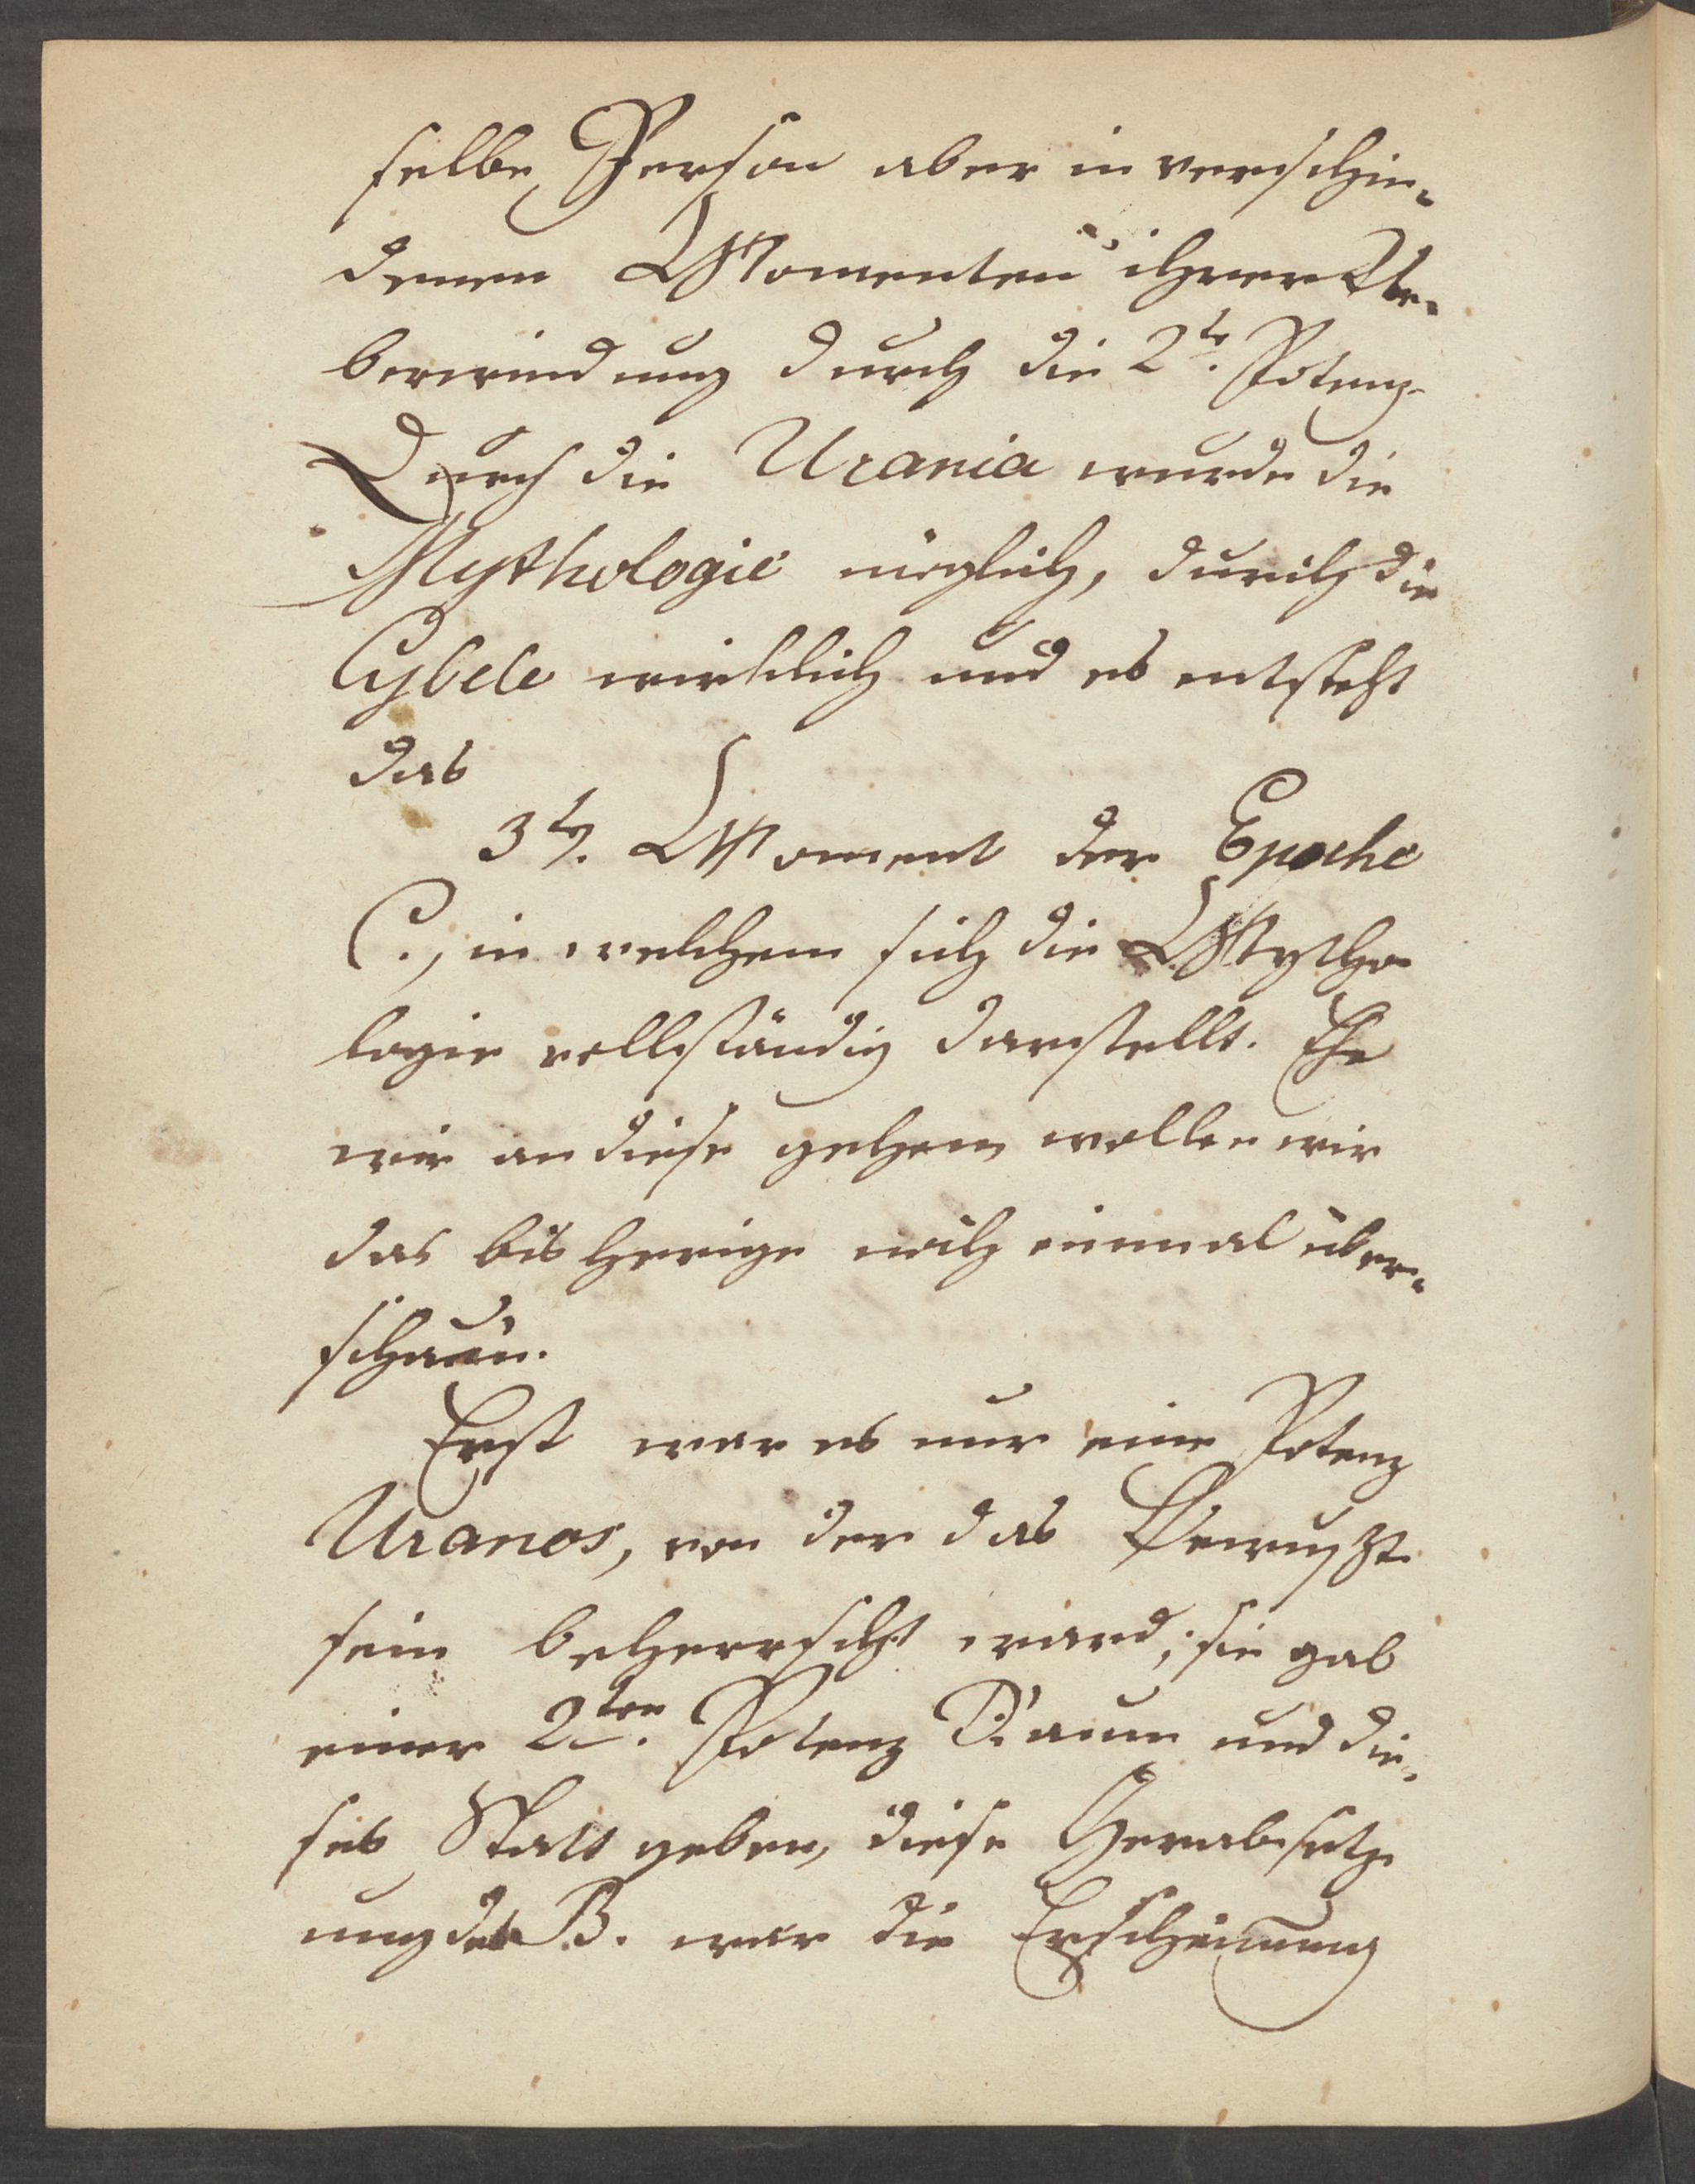 selbe Person aber in verschie-
denen Momenten ihrer Ue-
berwindung durch die 2te. Potenz.
Durch die Urania wurde die
Mythologie möglich, durch die
Cybele wirklich und es entsteht
das
3te. Moment der Epoche
C., in welchem sich die Mytho
logie vollständig darstellt. Ehe
wir an diese gehen, wollen wir
das bisherige noch einmal über-
schauen.
Erst war es nur eine Potenz
Uranos, von der das Bewußt
sein beherrscht ward; sie gab
einer 2ten. Potenz Raum und die-
ses Statt geben, diese Herabsetz
ung des B. war die Erscheinung